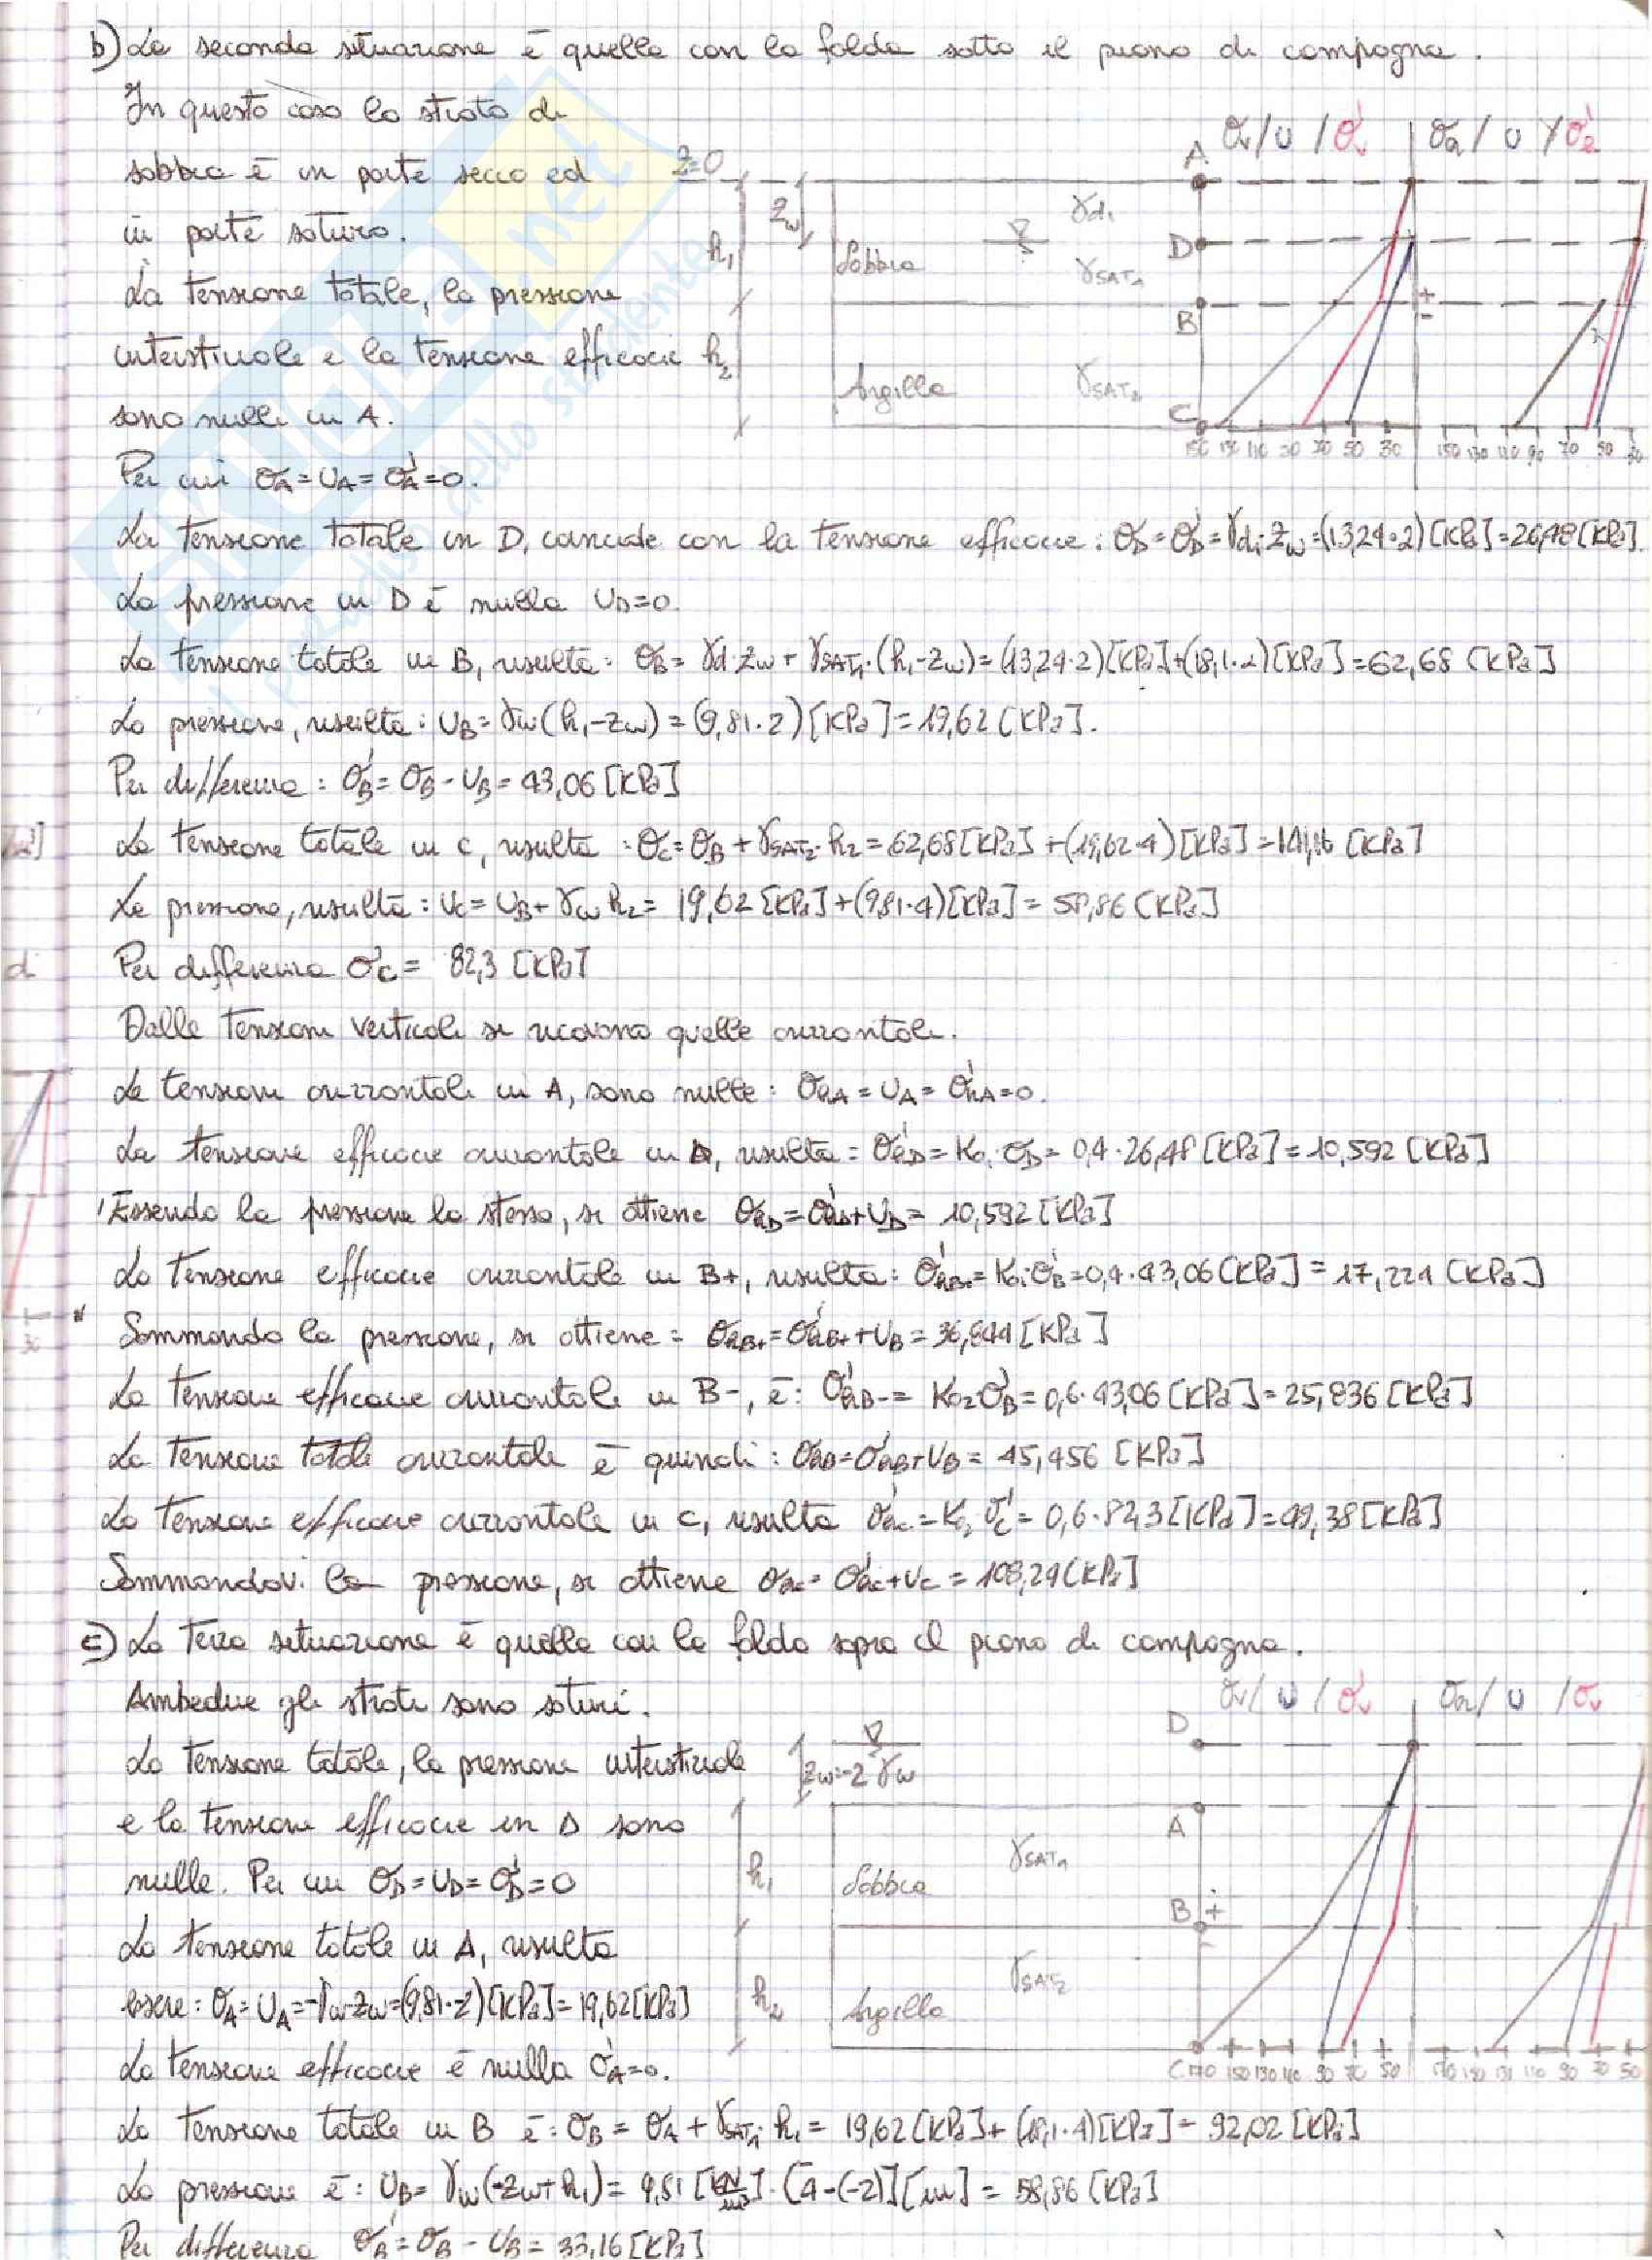 b) La seconda situazione è quella con la falda sotto il piano di campagna.
In questo caso lo strato di
sabbia è in parte secco ed
in parte saturo.
La tensione totale, la pressione
interstiziale e la tensione efficace
sono nulle in A.
Per cui σA = uA = σ'A = 0.
z=0
zw
h1
h2
Sabbia
Argilla
γd1
γSAT1
γSAT2
A
D
B
C
+
-
σv / u / σ'v
σh / u / σ'h
150 130 110 90 70 50 30
150 130 110 90 70 50 30
La tensione totale in D, coincide con la tensione efficace: σD = σ'D = γd1·zw = (13,24·2)[KPa] = 26,48[KPa].
La pressione in D è nulla uD=0.
La tensione totale in B, risulta: σB = γd·zw + γSAT1·(h1-zw) = (13,24·2)[KPa]+(18,1·2)[KPa] = 62,68 [KPa]
La pressione, risulta: uB = γw(h1-zw) = (9,81·2)[KPa] = 19,62 [KPa].
Per differenza: σ'B = σB - uB = 43,06 [KPa]
La tensione totale in C, risulta: σC = σB + γSAT2·h2 = 62,68[KPa] + (19,62·4)[KPa] = 141,16 [KPa]
La pressione, risulta: uC = uB + γw h2 = 19,62 [KPa]+(9,81·4)[KPa] = 58,86 [KPa]
Per differenza σ'C = 82,3 [KPa]
Dalle tensioni verticali si ricavano quelle orizzontali.
Le tensioni orizzontali in A, sono nulle: σhA = uA = σ'hA = 0.
La tensione efficace orizzontale in D, risulta: σ'hD = K01·σ'D = 0,4·26,48 [KPa] = 10,592 [KPa]
Essendo la pressione la stessa, si ottiene σhD = σ'hD + uD = 10,592 [KPa]
La tensione efficace orizzontale in B+, risulta: σ'hB+ = K01·σ'B = 0,4·43,06 [KPa] = 17,224 [KPa]
Sommando la pressione, si ottiene: σhB+ = σ'hB+ + uB = 36,844 [KPa]
La tensione efficace orizzontale in B-, è: σ'hB- = K02 σ'B = 0,6·43,06 [KPa] = 25,836 [KPa]
La tensione totale orizzontale è quindi: σhB = σ'hB + uB = 45,456 [KPa]
La tensione efficace orizzontale in C, risulta σ'hC = K02 σ'C = 0,6·82,3 [KPa] = 49,38 [KPa]
Sommandovi la pressione, si ottiene σhC = σ'hC + uC = 108,24 [KPa]
c) La terza situazione è quella con la falda sopra il piano di campagna.
Ambedue gli strati sono saturi.
La tensione totale, la pressione interstiziale
e la tensione efficace in D sono
nulle. Per cui σD = uD = σ'D = 0
La tensione totale in A, risulta
essere: σA = uA = -γw·zw = (9,81·2)[KPa] = 19,62[KPa]
La tensione efficace è nulla σ'A = 0.
zw=-2
γw
h1
h2
Sabbia
Argilla
γSAT1
γSAT2
D
A
B +
-
C
σv / u / σ'v
σh / u / σv
170 150 130 110 90 70 50
170 150 131 110 90 70 50
La tensione totale in B è: σB = σA + γSAT1·h1 = 19,62 [KPa] + (18,1·4)[KPa] = 92,02 [KPa]
La pressione è: uB = γw(-zw+h1) = 9,81 [KN/m³]·[4-(-2)][m] = 58,86 [KPa]
Per differenza σ'B = σB - uB = 33,16 [KPa]
SKUOLA.net